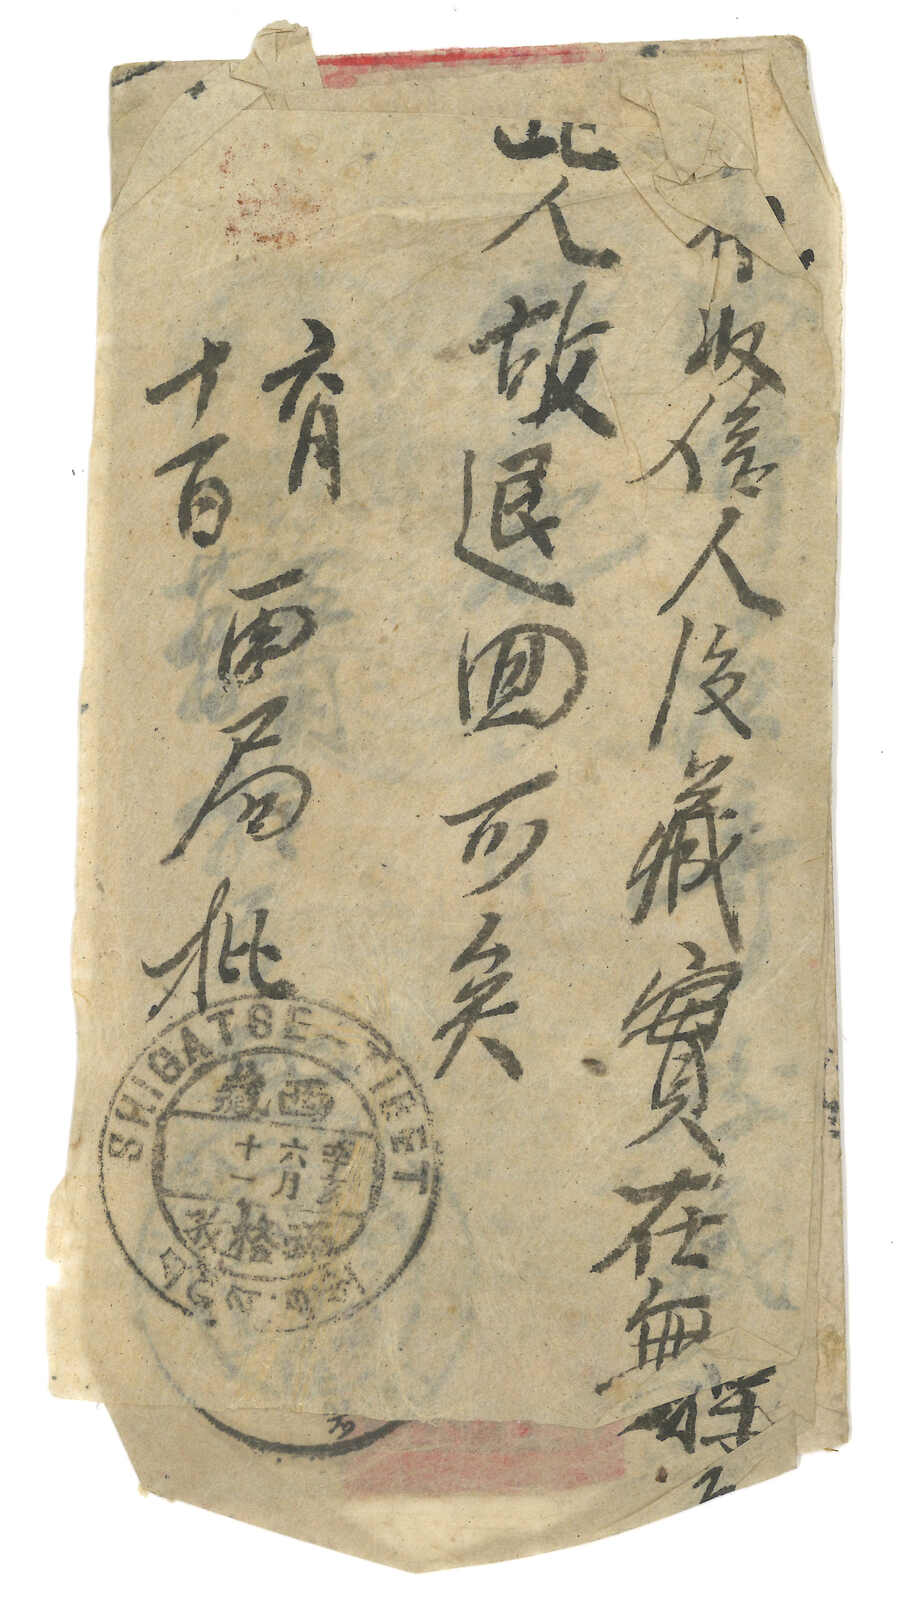 收信人后藏實在無
此人故退回可矣
六月
十一日
西局批
SHIGATSE-TIBET
西藏
六月
十一
格